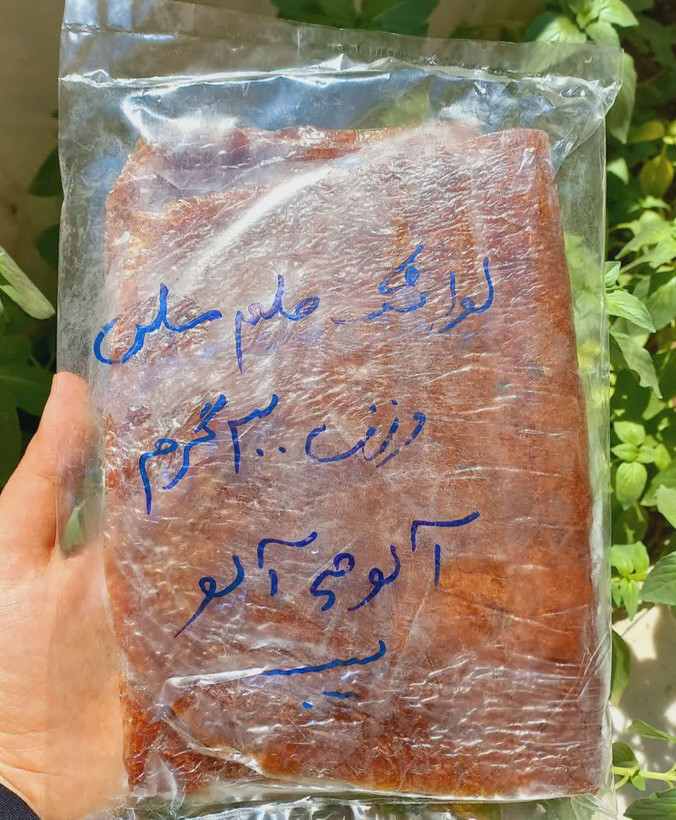 لواشک ملس
وزن ۳۰۰ گرم
آلوچه آلو
سیب